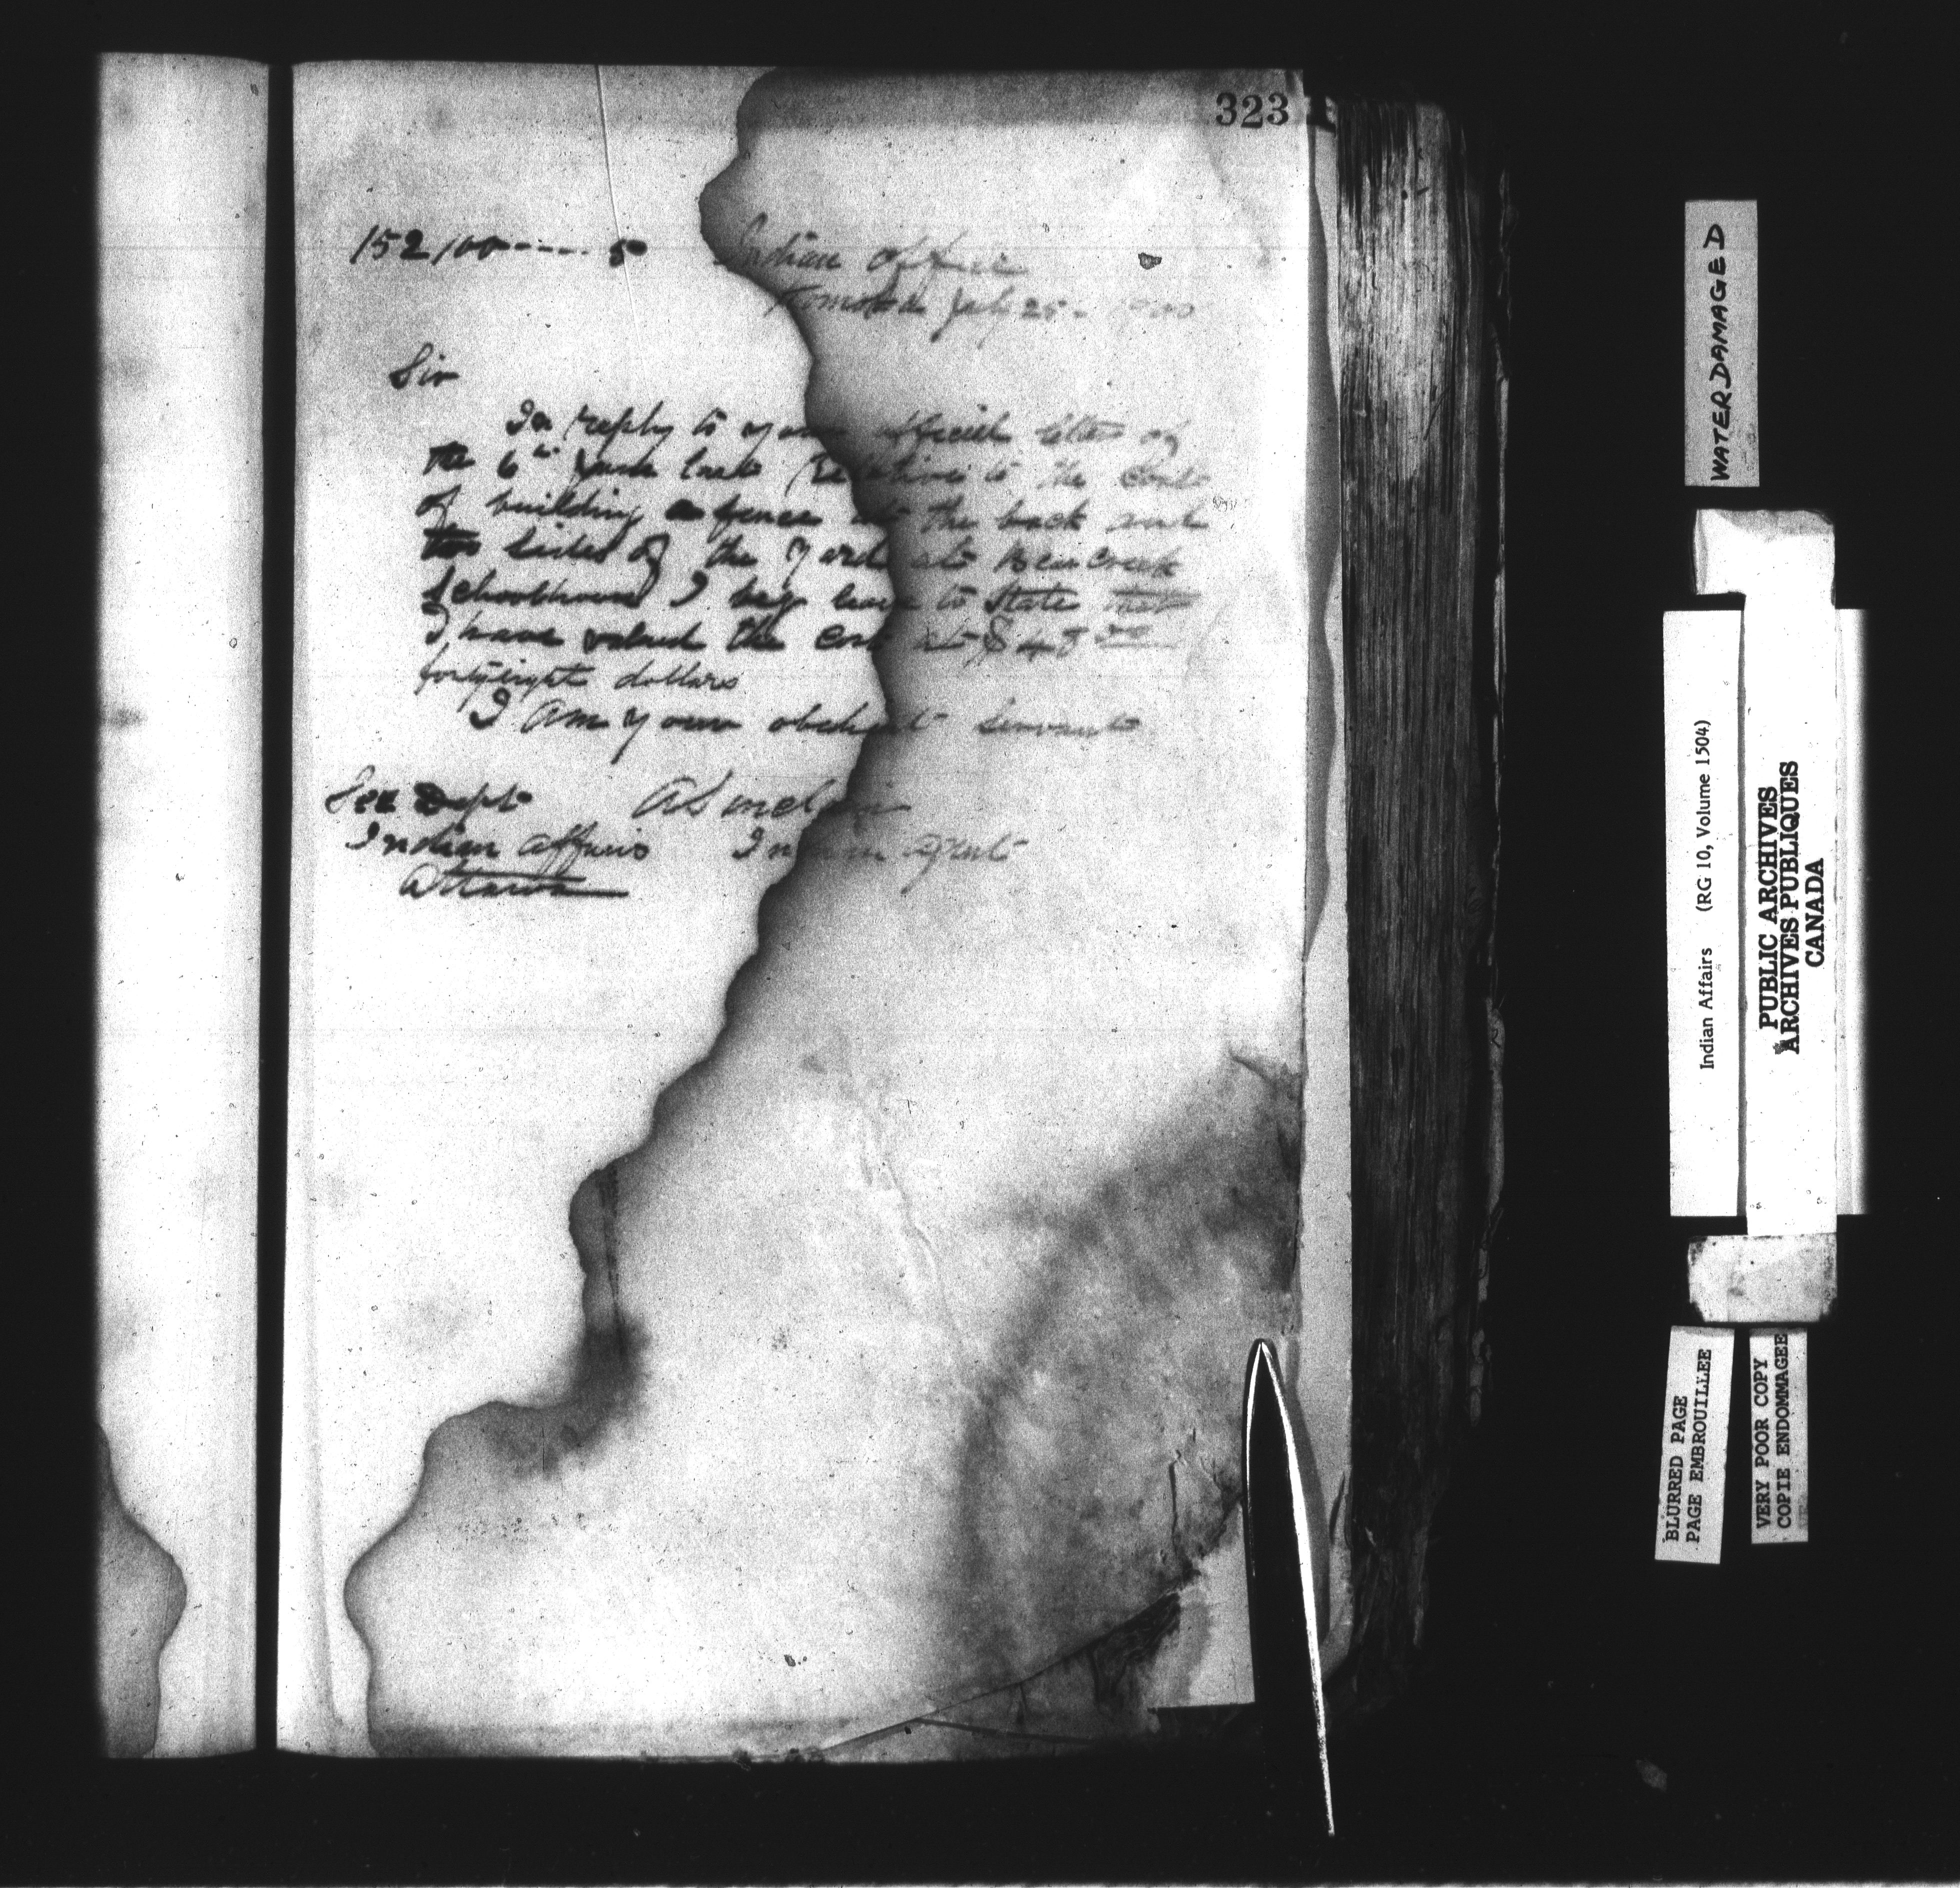 323
152,100----- 5
Indian Office
Komoka July 25 - 1900
Sir
In reply to your official letter of
the 6th June last Relative to the Cost
of building a fence at the back and
two sides of the yard at Bear Creek
Schoolhouse I beg leave to State that
I have valued the cost at $48
forty eight dollars
I am your obedient Servant
Sec Dept
Indian Affairs
Ottawa
Indian Agent
WATER DAMAGED
Indian Affairs (RG 10, Volume 1504)
PUBLIC ARCHIVES
ARCHIVES PUBLIQUES
CANADA
BLURRED PAGE
PAGE EMBROUILLEE
VERY POOR COPY
COPIE ENDOMMAGEE